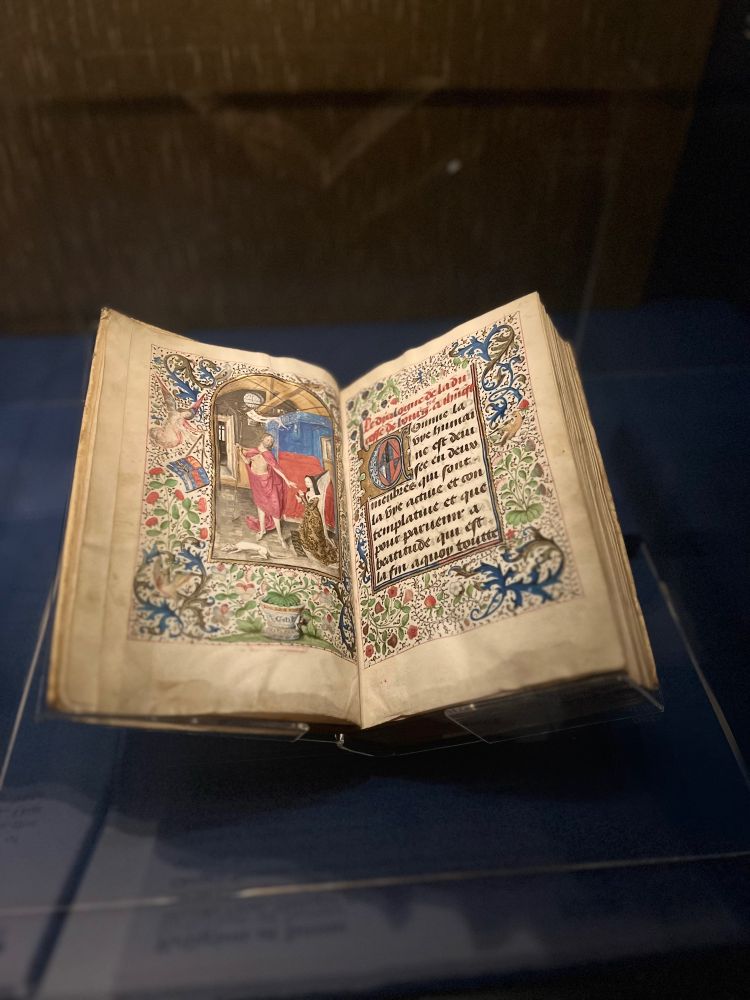 Le dyalogue de la du
cesse de
Comme la
vye humai
ne est deui
see en deux
menbres qui sont
la vye actiue et con
templatiue et que
pour paruenir a
beatitude qui est
la fin a quoy toutte